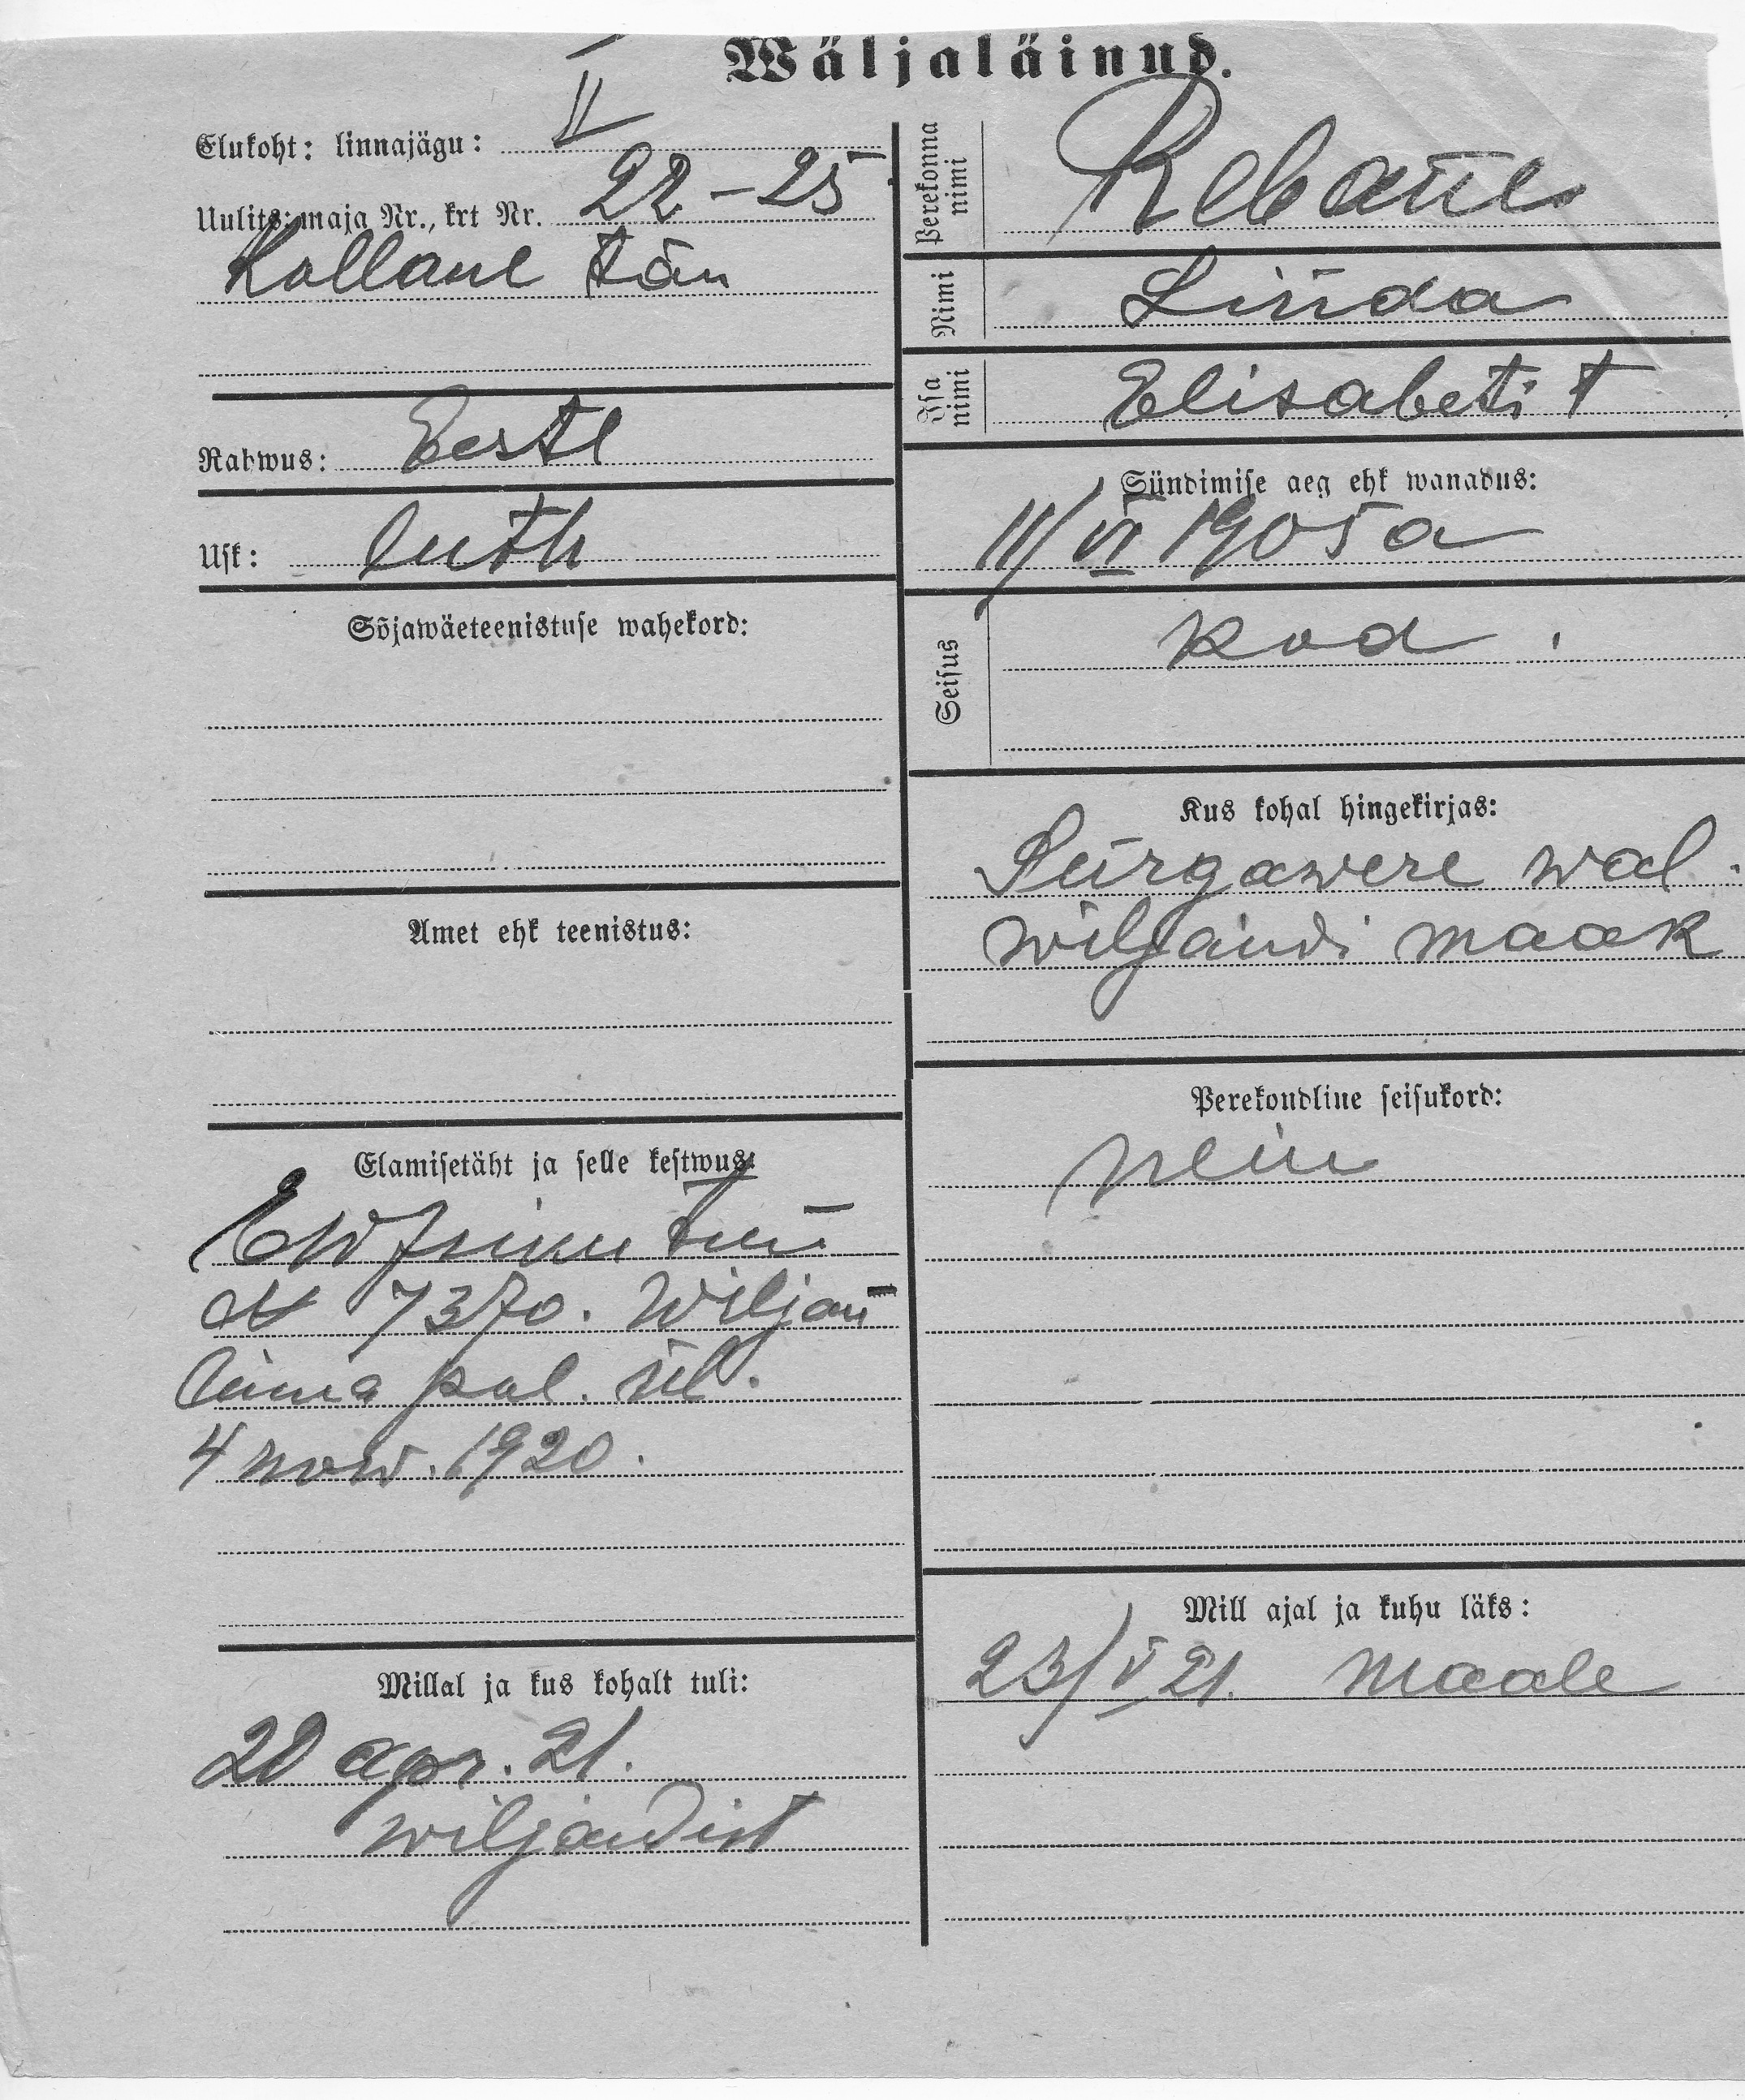 Wäljaläinud.
Elukoht: linnajägu: II
Uulits: maja Nr., krt Nr. 22-25
Kollane tän
Rahwus: Eestl
Usk: luth
Sõjawäeteenistuse wahekord:
Amet ehk teenistus:
Elamisetäht ja selle kestwus:
EW
№ 7370. Wiljan
linna pol. ül.
4 now. 1920.
Millal ja kus kohalt tuli:
20 apr. 21.
wiljandist
Perekonna nimi Rebane
Nimi Linda
Isa nimi Elisabeti t
Sündimise aeg ehk wanadus:
11/VI 1905 a
Seisus kod.
Kus kohal hingekirjas:
Pürgawere wal.
Wiljandi maak
Perekondline seisukord:
neiu
Mill ajal ja kuhu läks:
23/V 21. maale